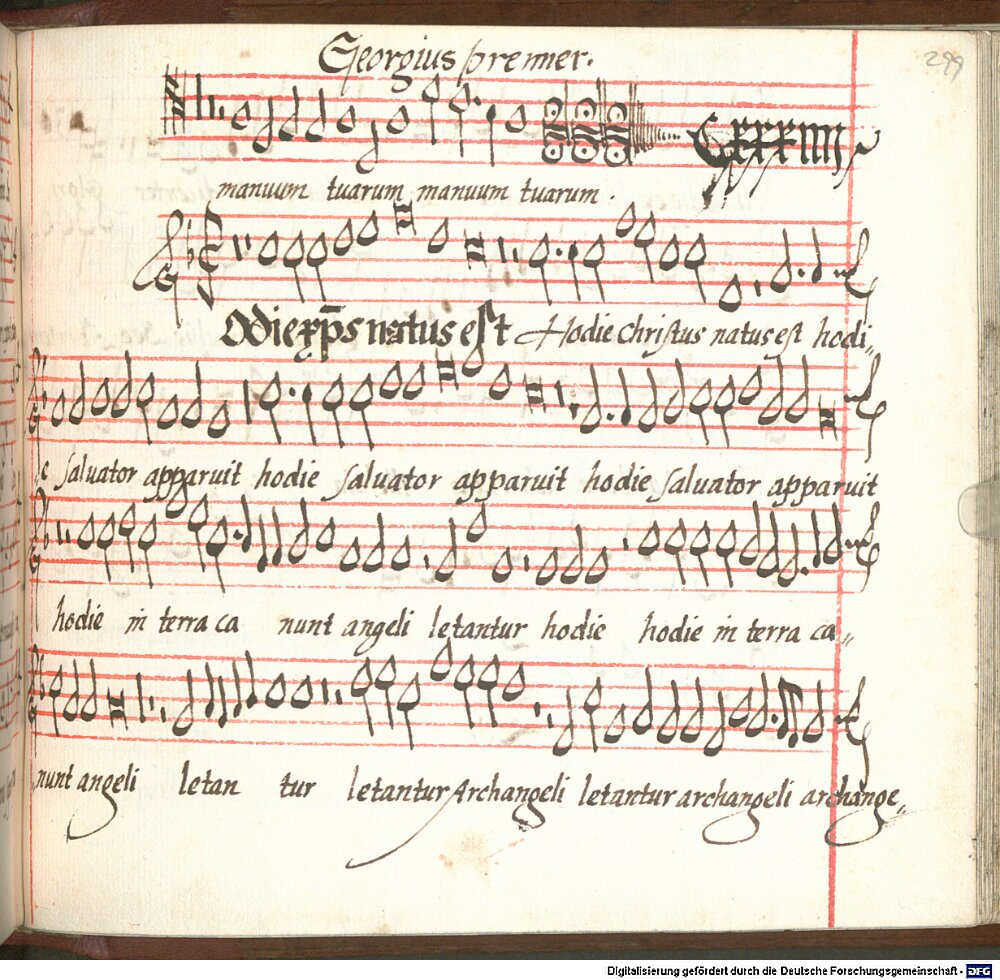 Georgius prenner.
299
manuum tuarum manuum tuarum.
Odie xp̄s natus est Hodie Christus natus est hodi„
e saluator apparuit hodie saluator apparuit hodie saluator apparuit
hodie in terra ca nunt angeli letantur hodie hodie in terra ca„
nunt angeli letan tur letantur Archangeli letantur archangeli archange„
Digitalisierung gefördert durch die Deutsche Forschungsgemeinschaft - DFG